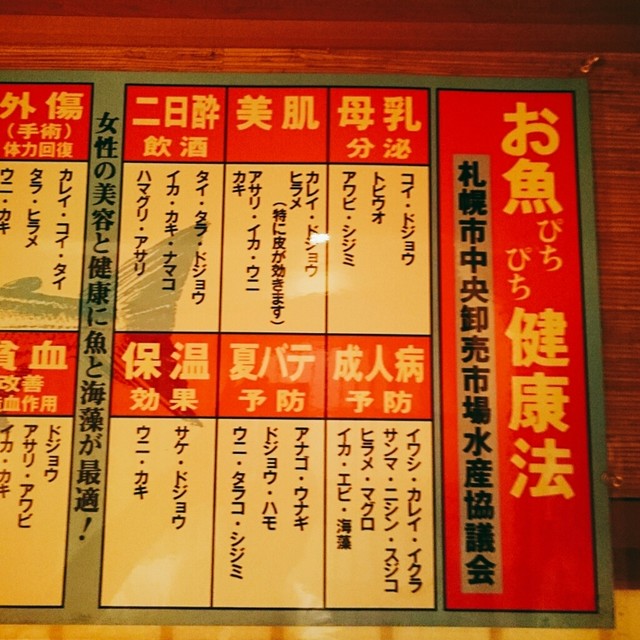 お魚ぴちぴち健康法
札幌市中央卸売市場水産協議会
母乳
分泌
コイ・ドジョウ
トビウオ
アワビ・シジミ
美肌
カレイ・ドジョウ
ヒラメ
(特に皮が効きます)
アサリ・イカ・ウニ
カキ
二日酔
飲酒
タイ・タラ・ドジョウ
イカ・カキ・ナマコ
ハマグリ・アサリ
成人病
予防
イワシ・カレイ・イクラ
サンマ・ニシン・スジコ
ヒラメ・マグロ
イカ・エビ・海藻
夏バテ
予防
アナゴ・ウナギ
ドジョウ・ハモ
ウニ・タラコ・シジミ
保温
効果
サケ・ドジョウ
ウニ・カキ
女性の美容と健康に魚と海藻が最適!
外傷
(手術)
体力回復
カレイ・コイ・タイ
タラ・ヒラメ
ウニ・カキ
貧血
改善
血作用
ドジョウ
アサリ・アワビ
イカ・カキ